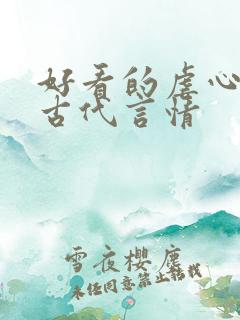 好看的虐心
古代言情
雪夜樱尘
未经同意禁止转载